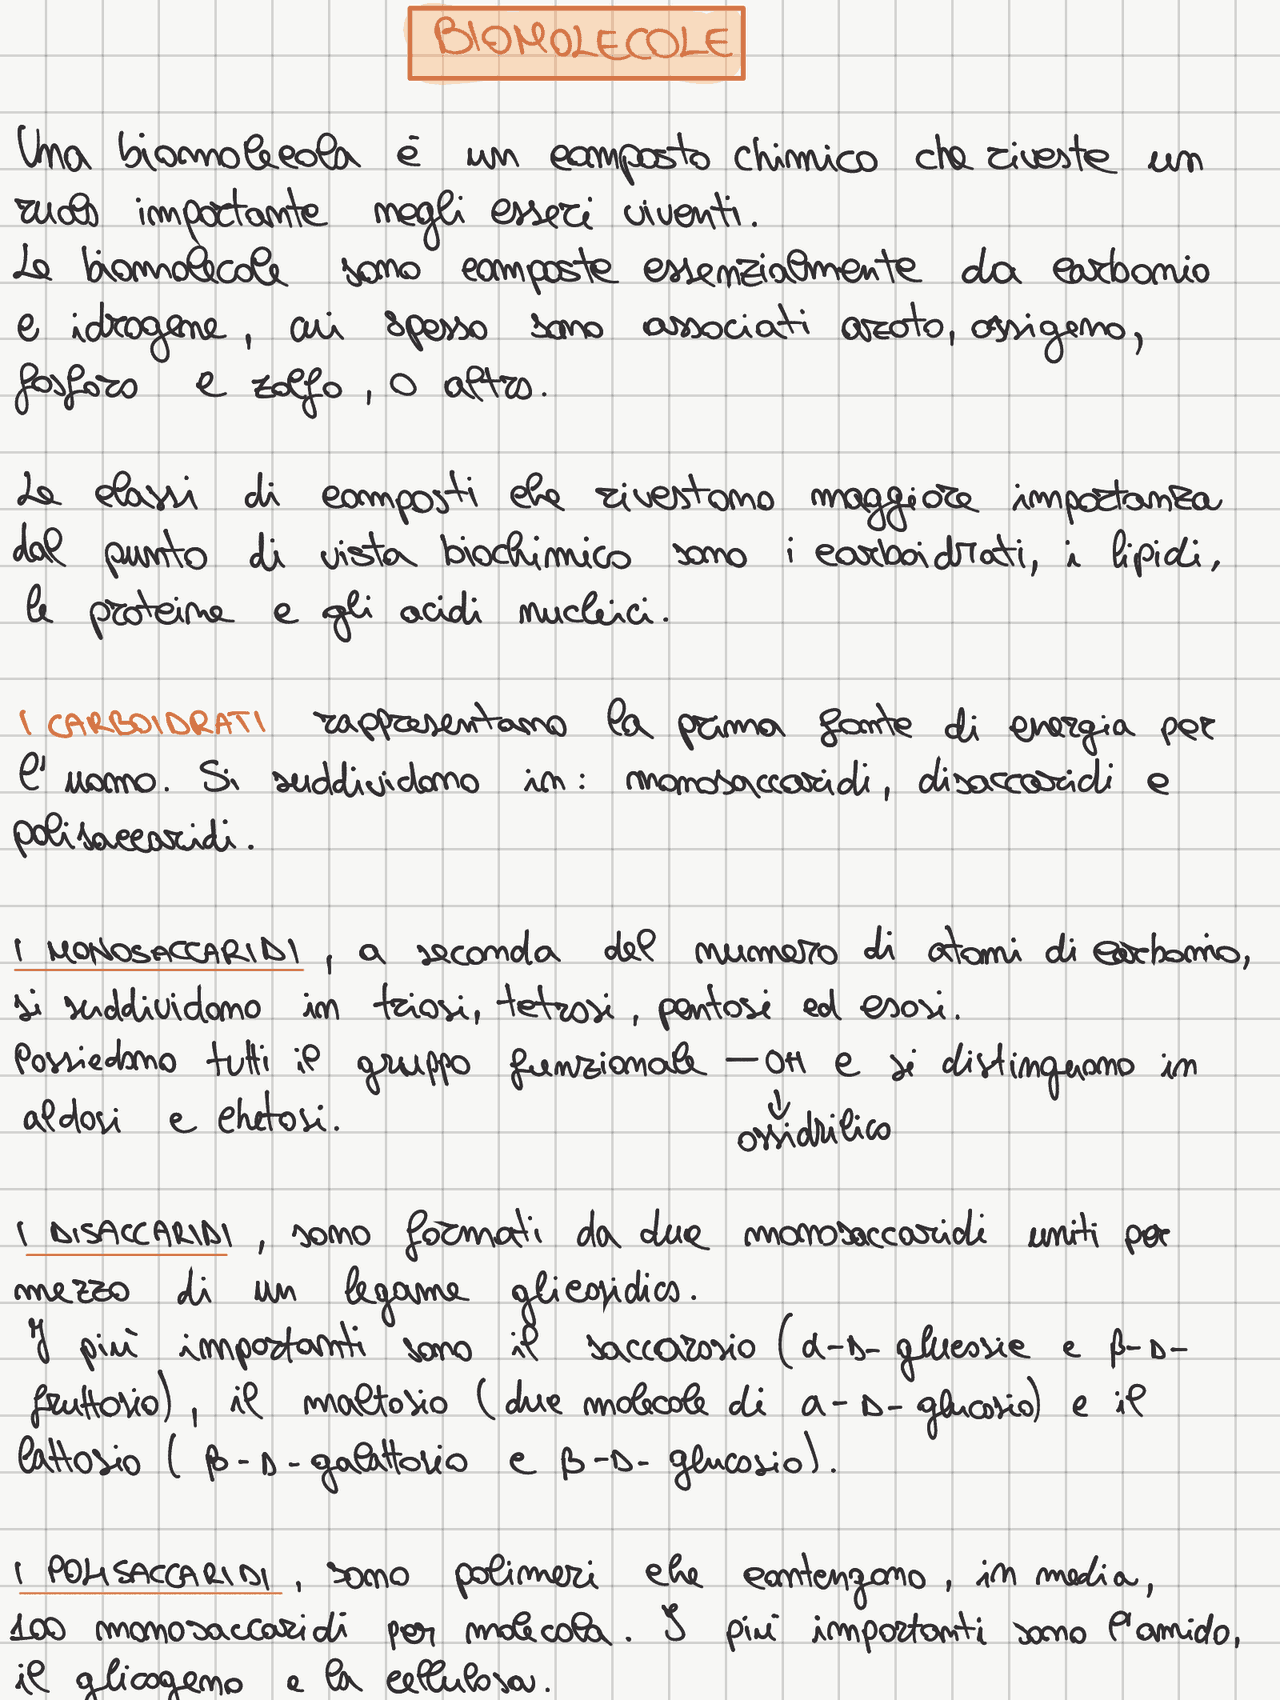 BIOMOLECOLE
Una biomolecola è un composto chimico che riveste un
ruolo importante negli esseri viventi.
Le biomolecole sono composte essenzialmente da carbonio
e idrogeno, cui spesso sono associati azoto, ossigeno,
fosforo e zolfo, o altro.
Le classi di composti che rivestono maggiore importanza
dal punto di vista biochimico sono i carboidrati, i lipidi,
le proteine e gli acidi nucleici.
I CARBOIDRATI rappresentano la prima fonte di energia per
l'uomo. Si suddividono in: monosaccaridi, disaccaridi e
polisaccaridi.
I MONOSACCARIDI, a seconda del numero di atomi di carbonio,
si suddividono in triosi, tetrosi, pentosi ed esosi.
Possiedono tutti il gruppo funzionale —OH e si distinguono in
aldosi e chetosi.
↓
ossidrilico
I DISACCARIDI, sono formati da due monosaccaridi uniti per
mezzo di un legame glicosidico.
I più importanti sono il saccarosio (α-D-glucosio e β-D-
fruttosio), il maltosio (due molecole di α-D-glucosio) e il
lattosio (β-D-galattosio e β-D-glucosio).
I POLISACCARIDI, sono polimeri che contengono, in media,
100 monosaccaridi per molecola. I più importanti sono l'amido,
il glicogeno e la cellulosa.